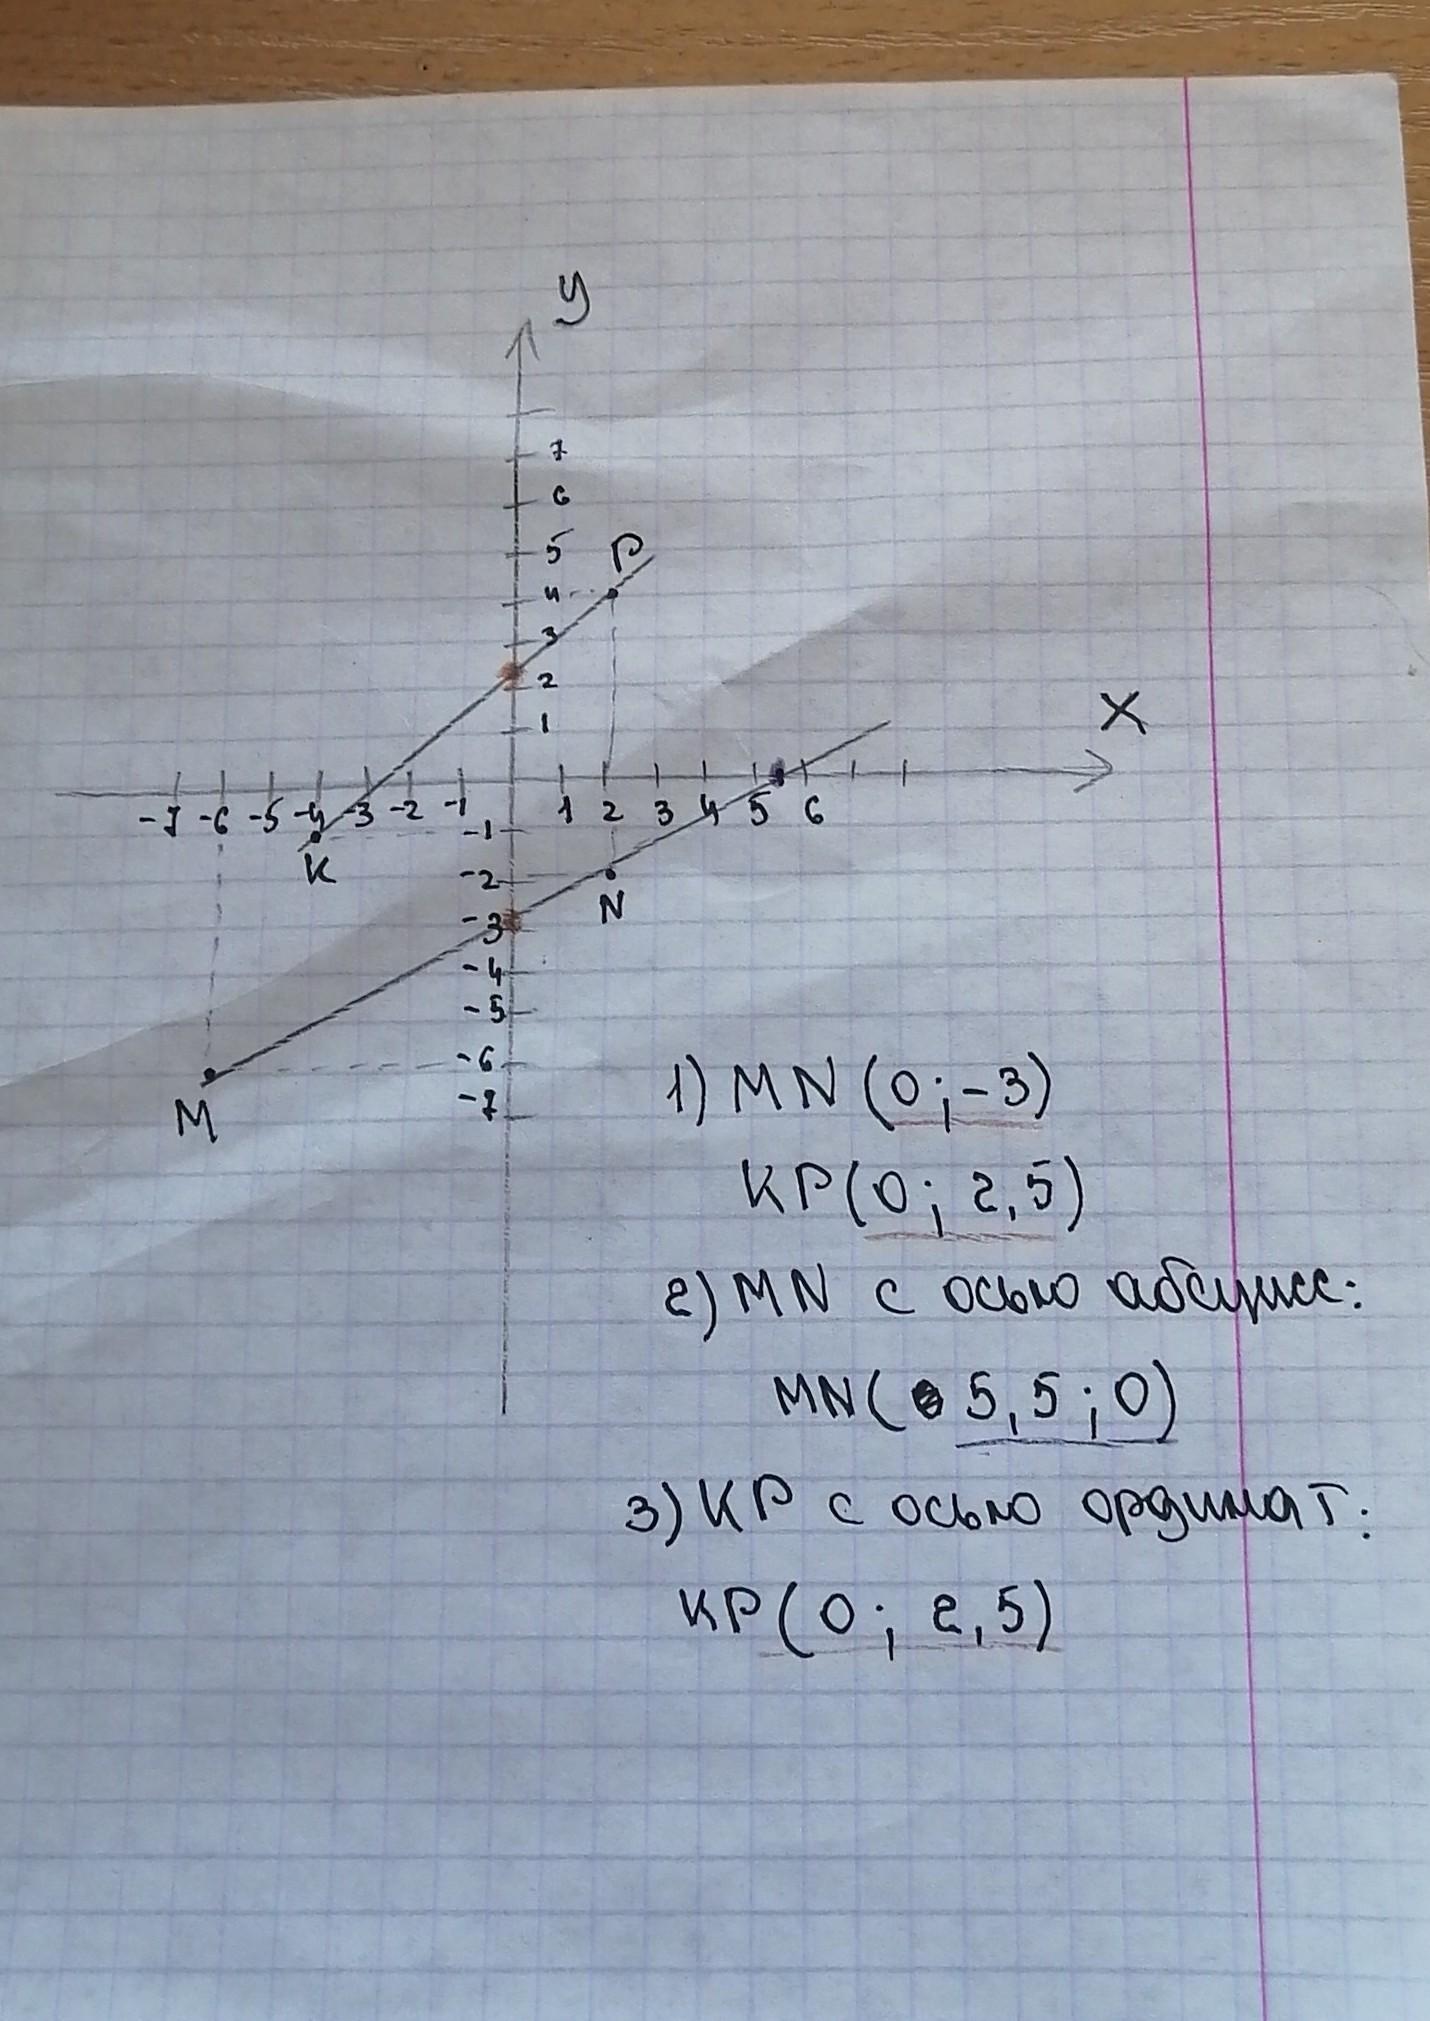 y
7
6
5
P
4
3
2
1
X
-7 -6 -5 -4 -3 -2 -1 1 2 3 4 5 6
-1
K
-2
N
-3
-4
-5
-6
-7
M
1) MN (0; -3)
KP (0; 2,5)
2) MN с осью абсцисс:
MN ( 5,5; 0)
3) KP с осью ординат:
KP (0; 2,5)